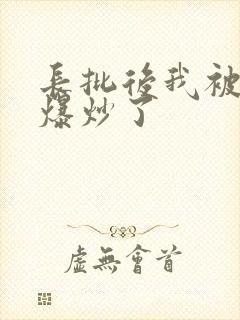 長批後我被
爆炒了
虛無會首